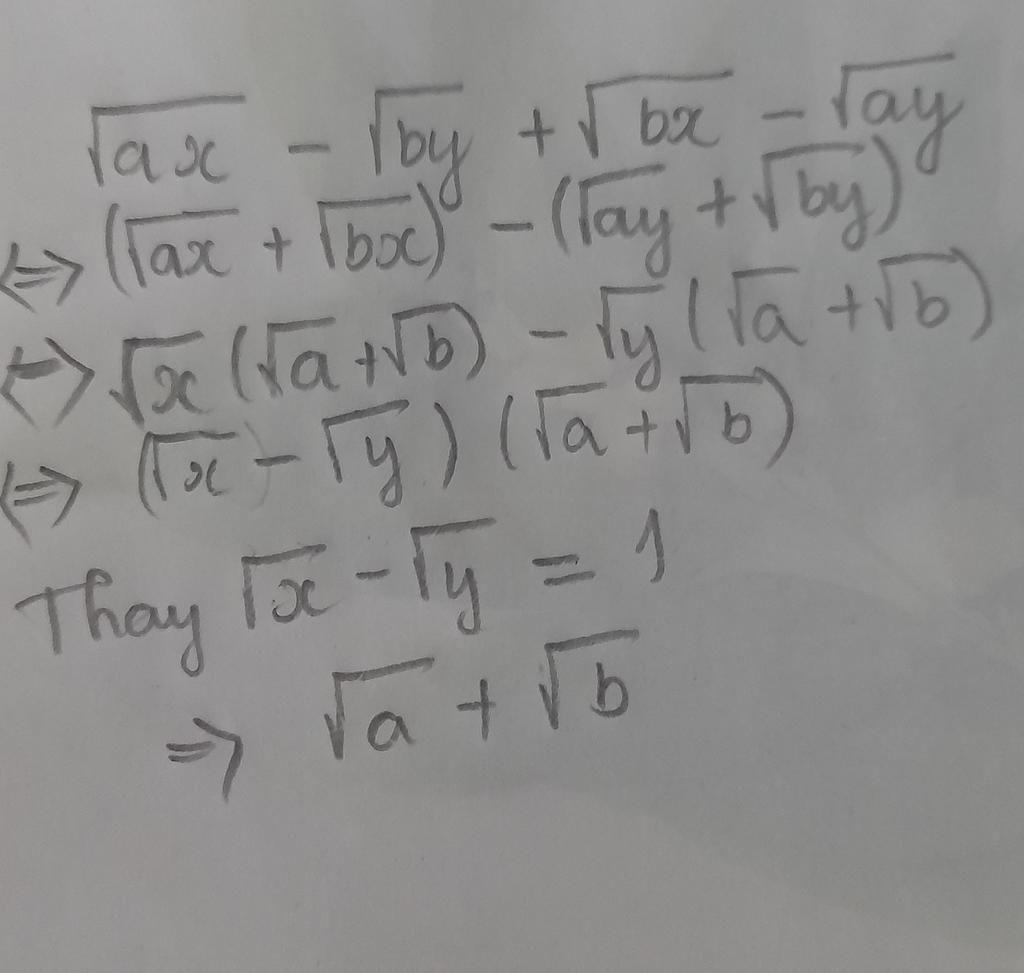 √ax - √by + √bx - √ay
⇔ (√ax + √bx) - (√ay + √by)
⇔ √x (√a + √b) - √y (√a + √b)
⇔ (√x - √y) (√a + √b)
Thay √x - √y = 1
⇒ √a + √b